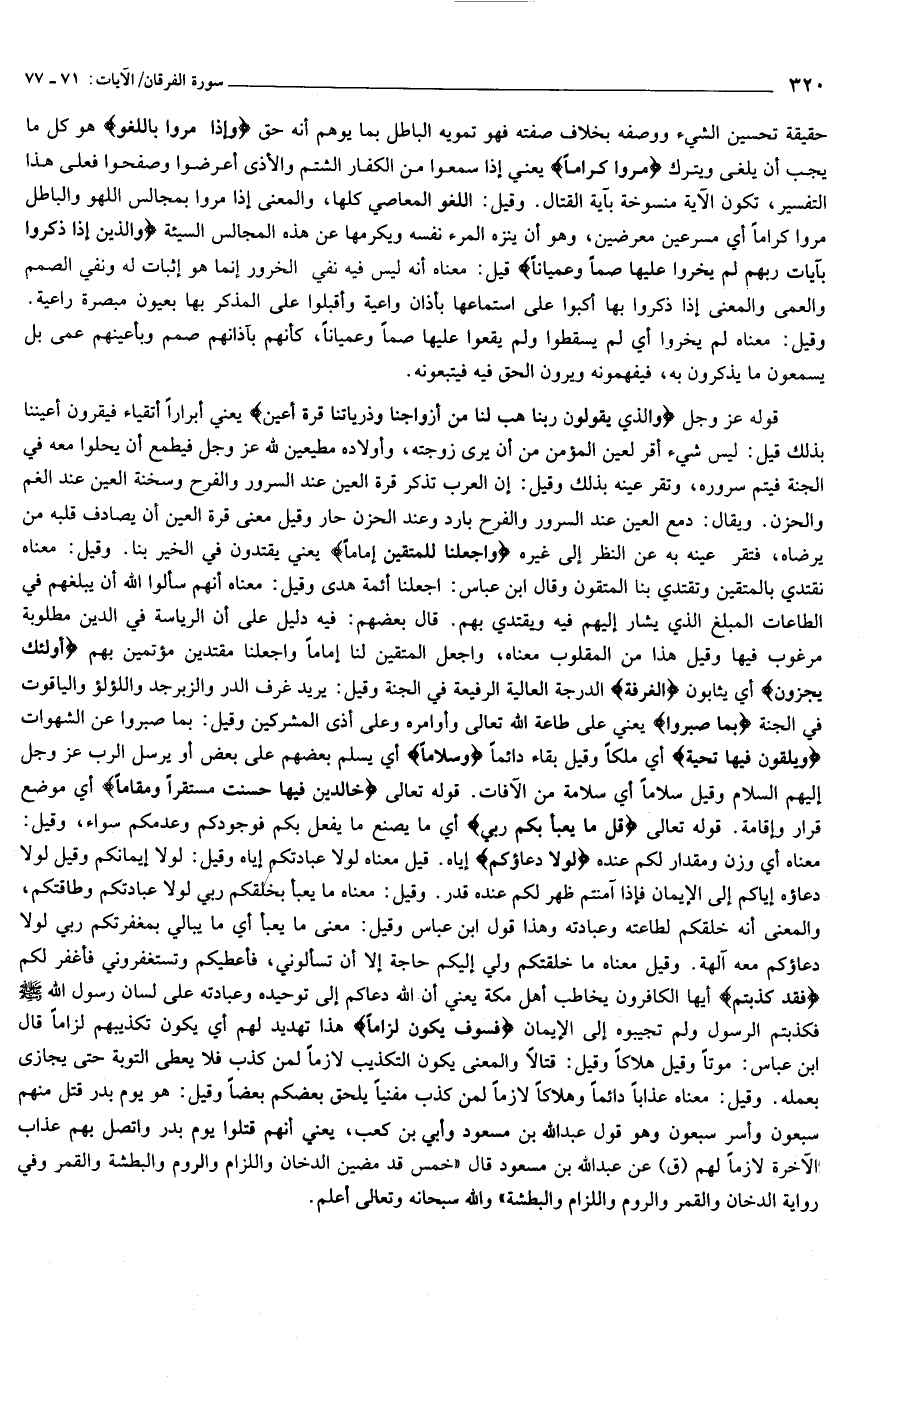 ٣٢٠ سورة الفرقان/ الآيات: ٧١ ـ ٧٧
حقيقة تحسين الشيء ووصفه بخلاف صفته فهو تمويه الباطل بما يوهم أنه حق ﴿وإذا مروا باللغو﴾ هو كل ما
يجب أن يلغى ويترك ﴿مروا كراماً﴾ يعني إذا سمعوا من الكفار الشتم والأذى أعرضوا وصفحوا فعلى هذا
التفسير، تكون الآية منسوخة بآية القتال. وقيل: اللغو المعاصي كلها، والمعنى إذا مروا بمجالس اللهو والباطل
مروا كراماً أي مسرعين معرضين، وهو أن ينزه المرء نفسه ويكرمها عن هذه المجالس السيئة ﴿والذين إذا ذكروا
بآيات ربهم لم يخروا عليها صماً وعمياناً﴾ قيل: معناه أنه ليس فيه نفي الخرور إنما هو إثبات له ونفي الصمم
والعمى والمعنى إذا ذكروا بها أكبوا على استماعها بأذان واعية وأقبلوا على المذكر بها بعيون مبصرة راعية.
وقيل: معناه لم يخروا أي لم يسقطوا ولم يقعوا عليها صماً وعمياناً، كأنهم بآذانهم صمم وبأعينهم عمى بل
يسمعون ما يذكرون به، فيفهمونه ويرون الحق فيه فيتبعونه.
قوله عز وجل ﴿والذي يقولون ربنا هب لنا من أزواجنا وذرياتنا قرة أعين﴾ يعني أبراراً أتقياء فيقرون أعيننا
بذلك قيل: ليس شيء أقر لعين المؤمن من أن يرى زوجته، وأولاده مطيعين لله عز وجل فيطمع أن يحلوا معه في
الجنة فيتم سروره، وتقر عينه بذلك وقيل: إن العرب تذكر قرة العين عند السرور والفرح وسخنة العين عند الغم
والحزن. ويقال: دمع العين عند السرور والفرح بارد وعند الحزن حار وقيل معنى قرة العين أن يصادف قلبه من
يرضاه، فتقر عينه به عن النظر إلى غيره ﴿واجعلنا للمتقين إماماً﴾ يعني يقتدون في الخير بنا. وقيل: معناه
نقتدي بالمتقين وتقتدي بنا المتقون وقال ابن عباس: اجعلنا أئمة هدى وقيل: معناه أنهم سألوا الله أن يبلغهم في
الطاعات المبلغ الذي يشار إليهم فيه ويقتدي بهم. قال بعضهم: فيه دليل على أن الرياسة في الدين مطلوبة
مرغوب فيها وقيل هذا من المقلوب معناه، واجعل المتقين لنا إماماً واجعلنا مقتدين مؤتمين بهم ﴿أولئك
يجزون﴾ أي يثابون ﴿الغرفة﴾ الدرجة العالية الرفيعة في الجنة وقيل: يريد غرف الدر والزبرجد واللؤلؤ والياقوت
في الجنة ﴿بما صبروا﴾ يعني على طاعة الله تعالى وأوامره وعلى أذى المشركين وقيل: بما صبروا عن الشهوات
﴿ويلقون فيها تحية﴾ أي ملكاً وقيل بقاء دائماً ﴿وسلاماً﴾ أي يسلم بعضهم على بعض أو يرسل الرب عز وجل
إليهم السلام وقيل سلاماً أي سلامة من الآفات. قوله تعالى ﴿خالدين فيها حسنت مستقراً ومقاماً﴾ أي موضع
قرار وإقامة. قوله تعالى ﴿قل ما يعبأ بكم ربي﴾ أي ما يصنع ما يفعل بكم فوجودكم وعدمكم سواء، وقيل:
معناه أي وزن ومقدار لكم عنده ﴿لولا دعاؤكم﴾ إياه. قيل معناه لولا عبادتكم إياه وقيل: لولا إيمانكم وقيل لولا
دعاؤه إياكم إلى الإيمان فإذا آمنتم ظهر لكم عنده قدر. وقيل: معناه ما يعبأ بخلقكم ربي لولا عبادتكم وطاقتكم،
والمعنى أنه خلقكم لطاعته وعبادته وهذا قول ابن عباس وقيل: معنى ما يعبأ أي ما يبالي بمغفرتكم ربي لولا
دعاؤكم معه آلهة. وقيل معناه ما خلقتكم ولي إليكم حاجة إلا أن تسألوني، فأعطيكم وتستغفروني فأغفر لكم
﴿فقد كذبتم﴾ أيها الكافرون يخاطب أهل مكة يعني أن الله دعاكم إلى توحيده وعبادته على لسان رسول الله ﷺ
فكذبتم الرسول ولم تجيبوه إلى الإيمان ﴿فسوف يكون لزاماً﴾ هذا تهديد لهم أي يكون تكذيبهم لزاماً قال
ابن عباس: موتاً وقيل هلاكاً وقيل: قتالاً والمعنى يكون التكذيب لازماً لمن كذب فلا يعطى التوبة حتى يجازى
بعمله. وقيل: معناه عذاباً دائماً وهلاكاً لازماً لمن كذب مفنياً يلحق بعضكم بعضاً وقيل: هو يوم بدر قتل منهم
سبعون وأسر سبعون وهو قول عبدالله بن مسعود وأبي بن كعب، يعني أنهم قتلوا يوم بدر واتصل بهم عذاب
الآخرة لازماً لهم (ق) عن عبدالله بن مسعود قال «خمس قد مضين الدخان واللزام والروم والبطشة والقمر وفي
رواية الدخان والقمر والروم واللزام والبطشة» والله سبحانه وتعالى أعلم.